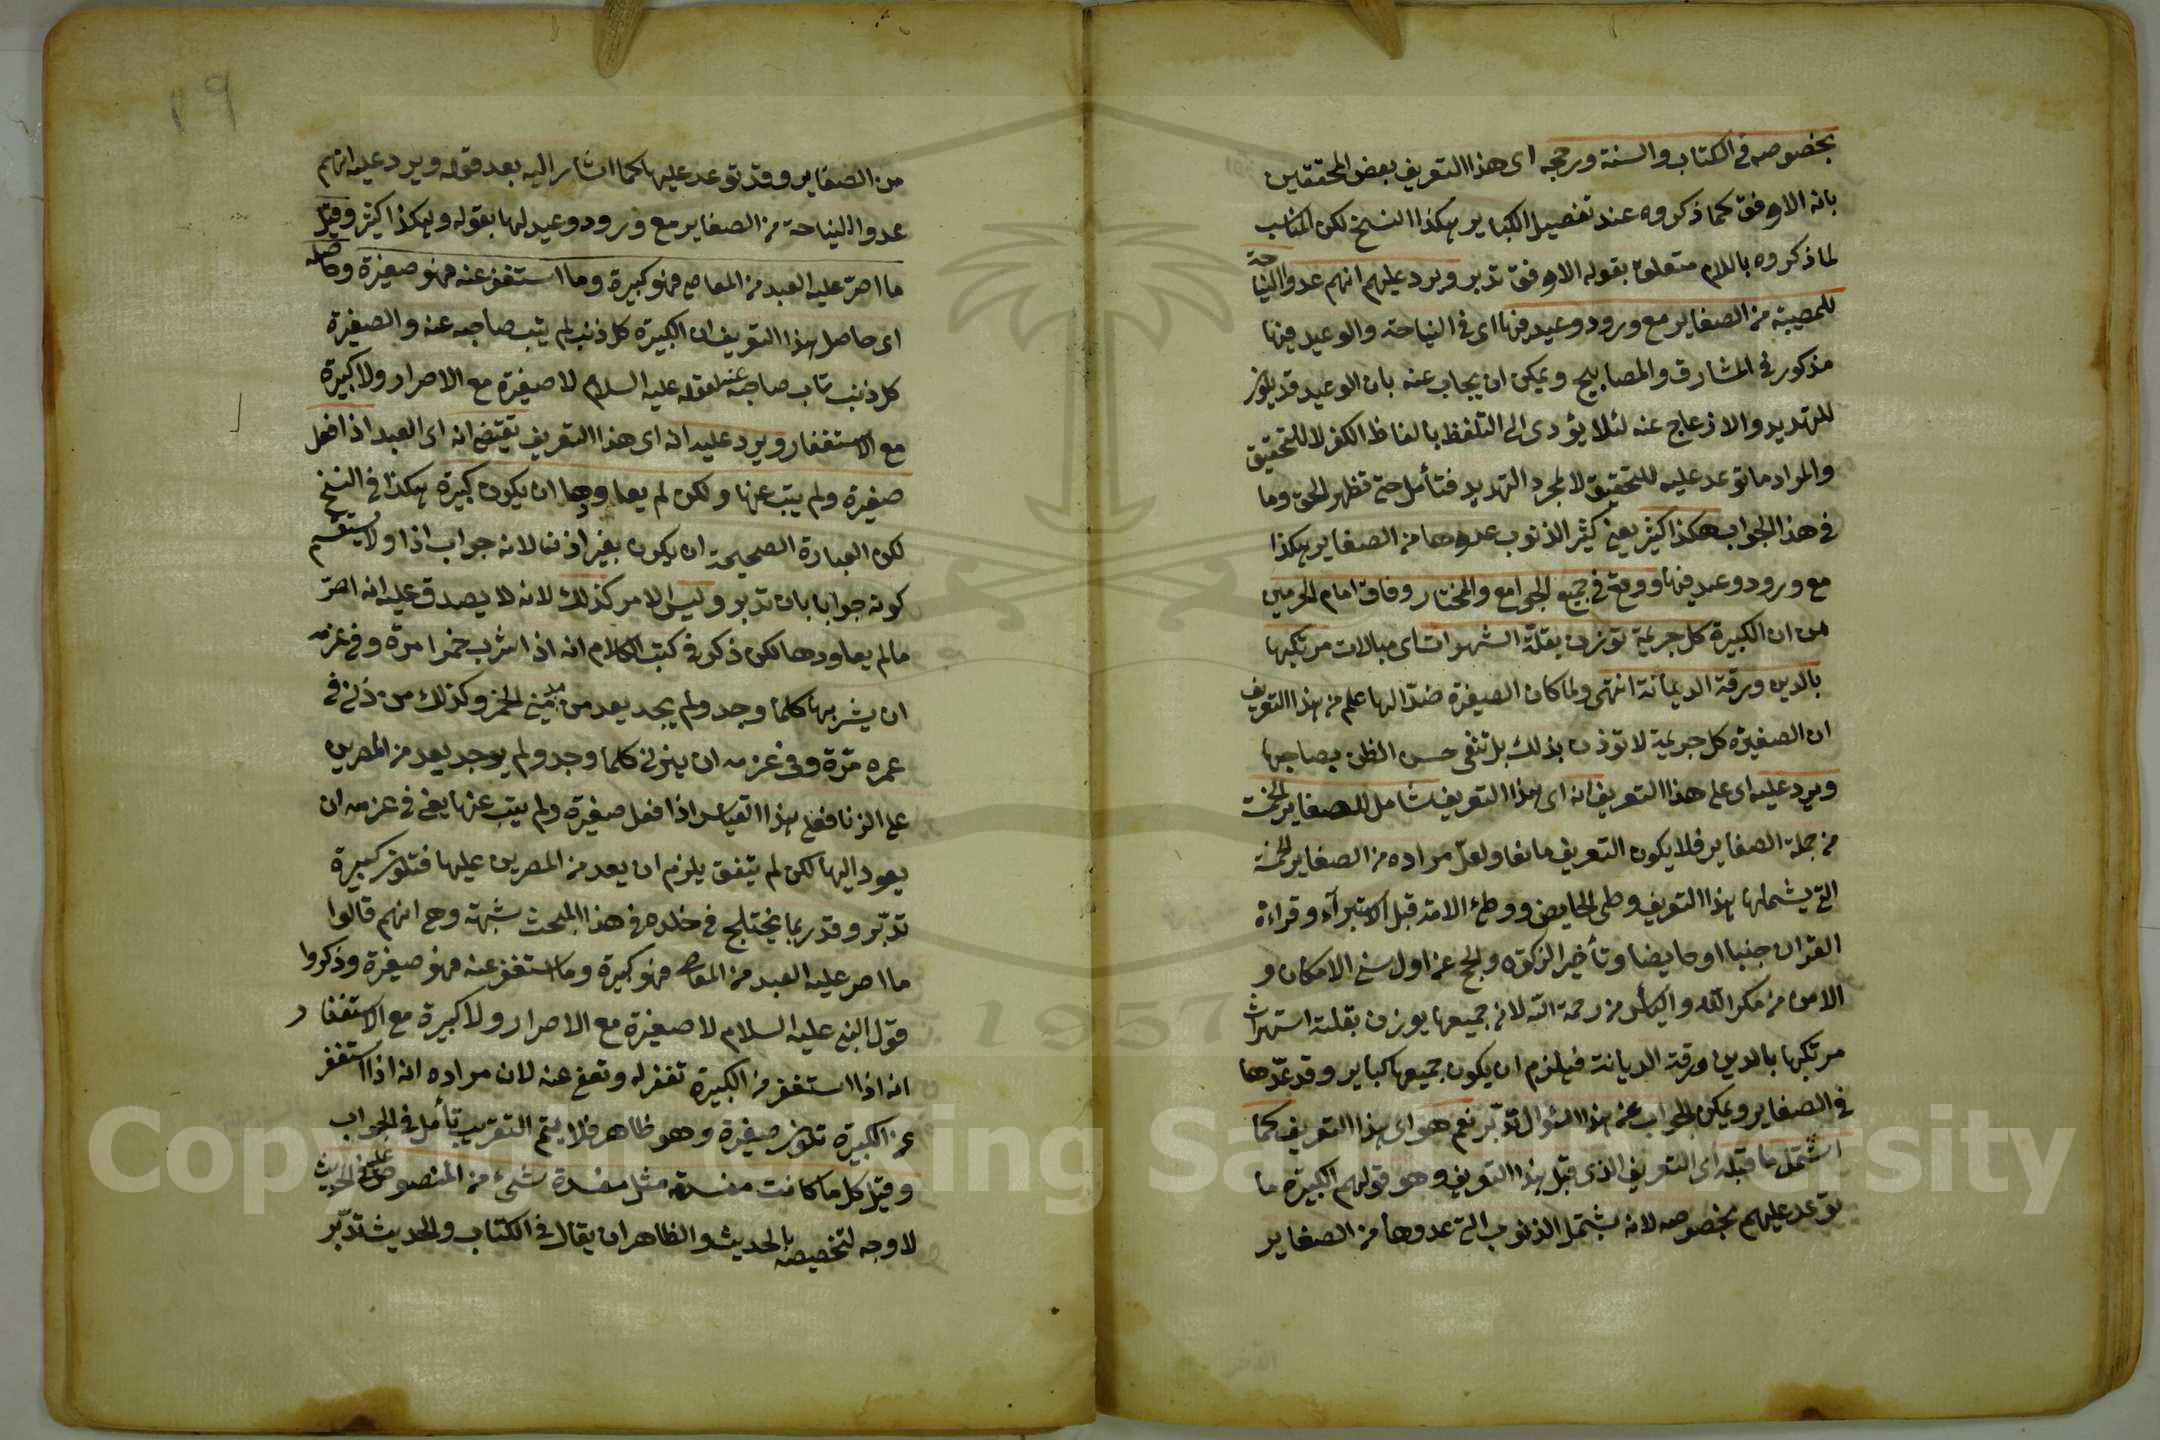 بخصوصه فى الكتاب والسنة ورجحه اى هذا التعريف بعض المحققين
بانه الاوفق كما ذكروه عند تفصيل الكباير هكذا النسخ لكن المناسب
لما ذكروه باللام متعلق بقوله الاوفق تدبر ويرد عليهم انهم عدوا النياحة
للمصيبة من الصغاير مع ورود وعيد فيها اى فى النياحة والوعيد فيها
مذكور فى المشارق والمصابيح ويمكن ان يجاب عنه بان الوعيد قد يكون
للتهديد والازعاج عنه لئلا يؤدى الى التلفظ بالفاظ الكفر لا للتحقيق
والمراد ما توعد عليه للتحقيق لا لمجرد التهديد فتأمل حتى تظهر الحق وما
فى هذا الجواب هكذا كثير يعنى كثير الذنوب عدوها من الصغاير هكذا
مع ورود وعيد فيها ووقع فى جمع الجوامع والمختار وفاق امام الحرمين
من ان الكبيرة كل جريمة توزن بقلة الشهوات اى مبالات مرتكبها
بالدين ورقة الديانة انتهى ولما كان الصغيرة ضدا لها علم من هذا التعريف
ان الصغيرة كل جريمة لا توذن بذلك بل تبقى حسن الظن بصاحبها
ويرد عليه اى على هذا التعريف انه اى هذا التعريف شامل للصغاير الخسة
من جملة الصغاير فلا يكون التعريف مانعا ولعل مراده من الصغاير الخسة
التى يشملها هذا التعريف وطى الحايض ووطئ الامة قبل الاستبرآء وقراءة
القران جنبا او حايضا وتأخير الزكوة والحج عن اول سنى الامكان و
الامن من مكر الله واليأس من رحمة الله لان جميعها يوزن بقلة اسهرات
مرتكبها بالدين ورقة الديانة فيلزم ان يكون جميعها كباير وقد عدها
فى الصغاير ويمكن الجواب عن هذا السؤال تدبر نعم هو اى هذا التعريف كما
اشتمل ما قبله اى التعريف الذى قبل هذا التعريف وهو قولهم الكبيرة ما
توعد عليهم بخصوصه لانه يشتمل الذنوب التى عدوها من الصغاير
٢٩
من الصغاير وقد توعد عليها كما اشار اليه بعد قوله ويرد عليه انهم
عدوا النياحة من الصغاير مع ورود وعيد لها بقوله وهكذا كثير وقيل
ما اصر عليه العبد من المعاصى فهو كبيرة وما استغفر عنه فهو صغيرة وحاصله
اى حاصل هذا التعريف ان الكبيرة كل ذنب لم يتب صاحبه عنه والصغيرة
كل ذنب تاب صاحبه عنه لقوله عليه السلام لا صغيرة مع الاصرار ولا كبيرة
مع الاستغفار ويرد عليه انه اى هذا التعريف تقتضى انه اى العبد اذا فعل
صغيرة ولم يتب عنها ولكن لم يعاودها ان يكون كبيرة هكذا فى النسخ
لكن العبارة الصحيحة ان يكون بغير اذ لانه جواب اذا ولا يستقيم
كونه جوابا بان تدبر وليس الامر كذلك لانه لا يصدق عليه انه اصر
ما لم يعاودها لكن ذكر فى كتب الكلام انه اذا شرب خمرا مرة وفى عزمه
ان يشربها كلما وجد ولم يجد يعد من مدمنى الخمر وكذلك من زنى فى
عمره مرة وفى عزمه ان يزنى كلما وجد ولم يوجد يعد من المصرين
على الزنا فعلى هذا القياس اذا فعل صغيرة ولم يتب عنها يعنى فى عزمه ان
يعود اليها لكن لم يتفق يلزم ان يعد من المصرين عليها فتكون كبيرة
تدبر وقد ربما يختلج فى خلده فى هذا المبحث شبهة وهى انهم قالوا
ما اصر عليه العبد من المعاصى فهو كبيرة وما استغفر عنه فهو صغيرة وذكروا
قول النبى عليه السلام لا صغيرة مع الاصرار ولا كبيرة مع الاستغفار
انه اذا استغفر من الكبيرة تغفر له وتعفى عنه لان مراده انه اذا استغفر
عن الكبيرة تكون صغيرة وهو ظاهر فلا يتم التقريب تأمل فى الجواب
وقيل كل ما كانت مفسدته مثل مفسدة شىء من المنصوص عليه فى الحديث
لا وجه لتخصيصه بالحديث والظاهر ان يقال فى الكتاب والحديث تدبر
Copyright © King Saud University
1957